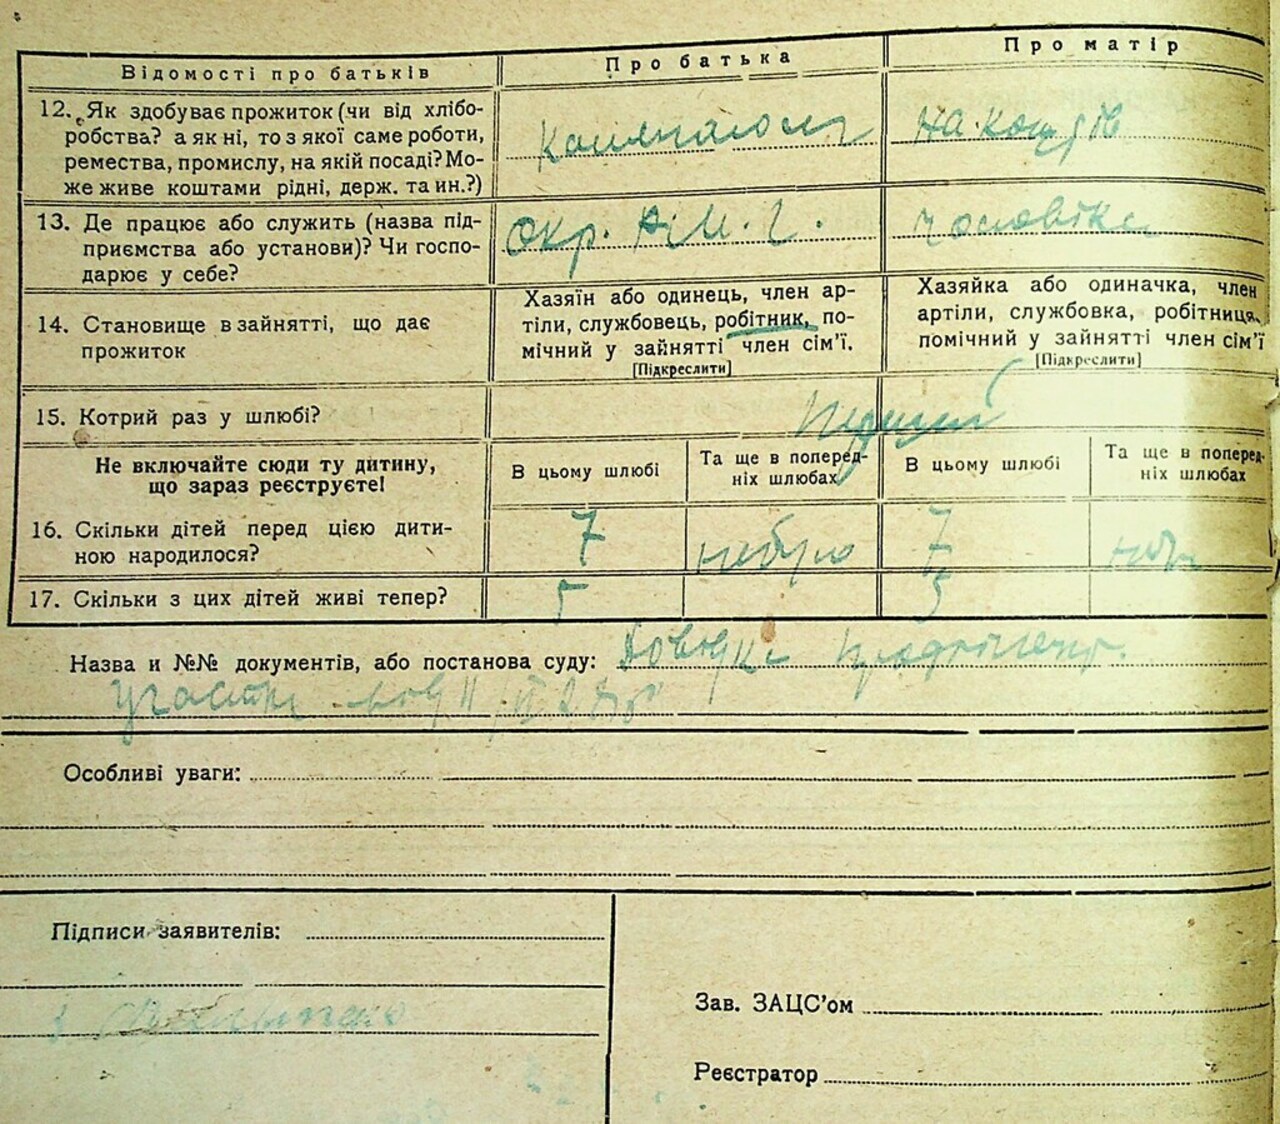 Відомості про батьків
Про батька
Про матір
12. Як здобуває прожиток (чи від хлібо-
робства? а як ні, то з якої саме роботи,
ремества, промислу, на якій посаді? Мо-
же живе коштами рідні, держ. та ин.?)
на кошт
13. Де працює або служить (назва під-
приємства або установи)? Чи госпо-
дарює у себе?
Окр.
чоловіка
14. Становище в зайнятті, що дає
прожиток
Хазяїн або одинець, член ар-
тіли, службовець, робітник, по-
мічний у зайнятті член сім'ї.
[Підкреслити]
Хазяйка або одиначка, член
артіли, службовка, робітниця,
помічний у зайнятті член сім'ї
[Підкреслити]
15. Котрий раз у шлюбі?
Перший
Не включайте сюди ту дитину,
що зараз реєструєте!
В цьому шлюбі
Та ще в поперед-
ніх шлюбах
В цьому шлюбі
Та ще в поперед-
ніх шлюбах
16. Скільки дітей перед цією дити-
ною народилося?
7
небуло
7
17. Скільки з цих дітей живі тепер?
5
5
Назва и №№ документів, або постанова суду: Довідка
Особливі уваги:
Підписи заявителів:
Зав. ЗАЦС'ом
Реєстратор